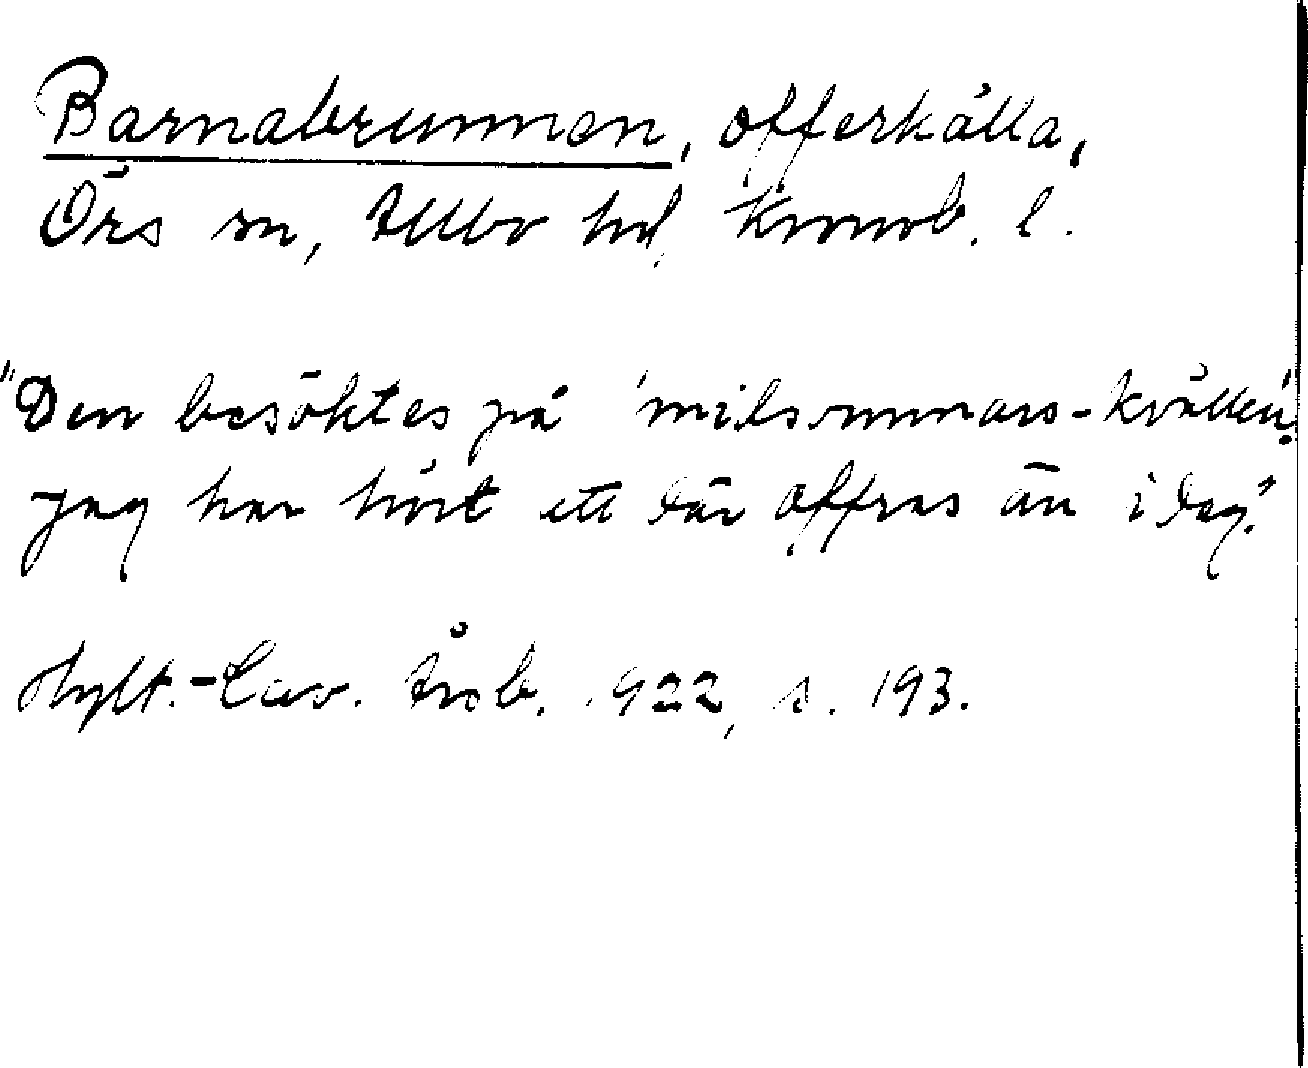 Barnabrunnen, offerkälla,
Örs sn, Allbo hd, Kronob. l.
"Den besöktes på 'midsommars-kvällen'.
jag har hört att där offras än i dag."
Hylt.-Cav. Årsb. 1922, s. 193.